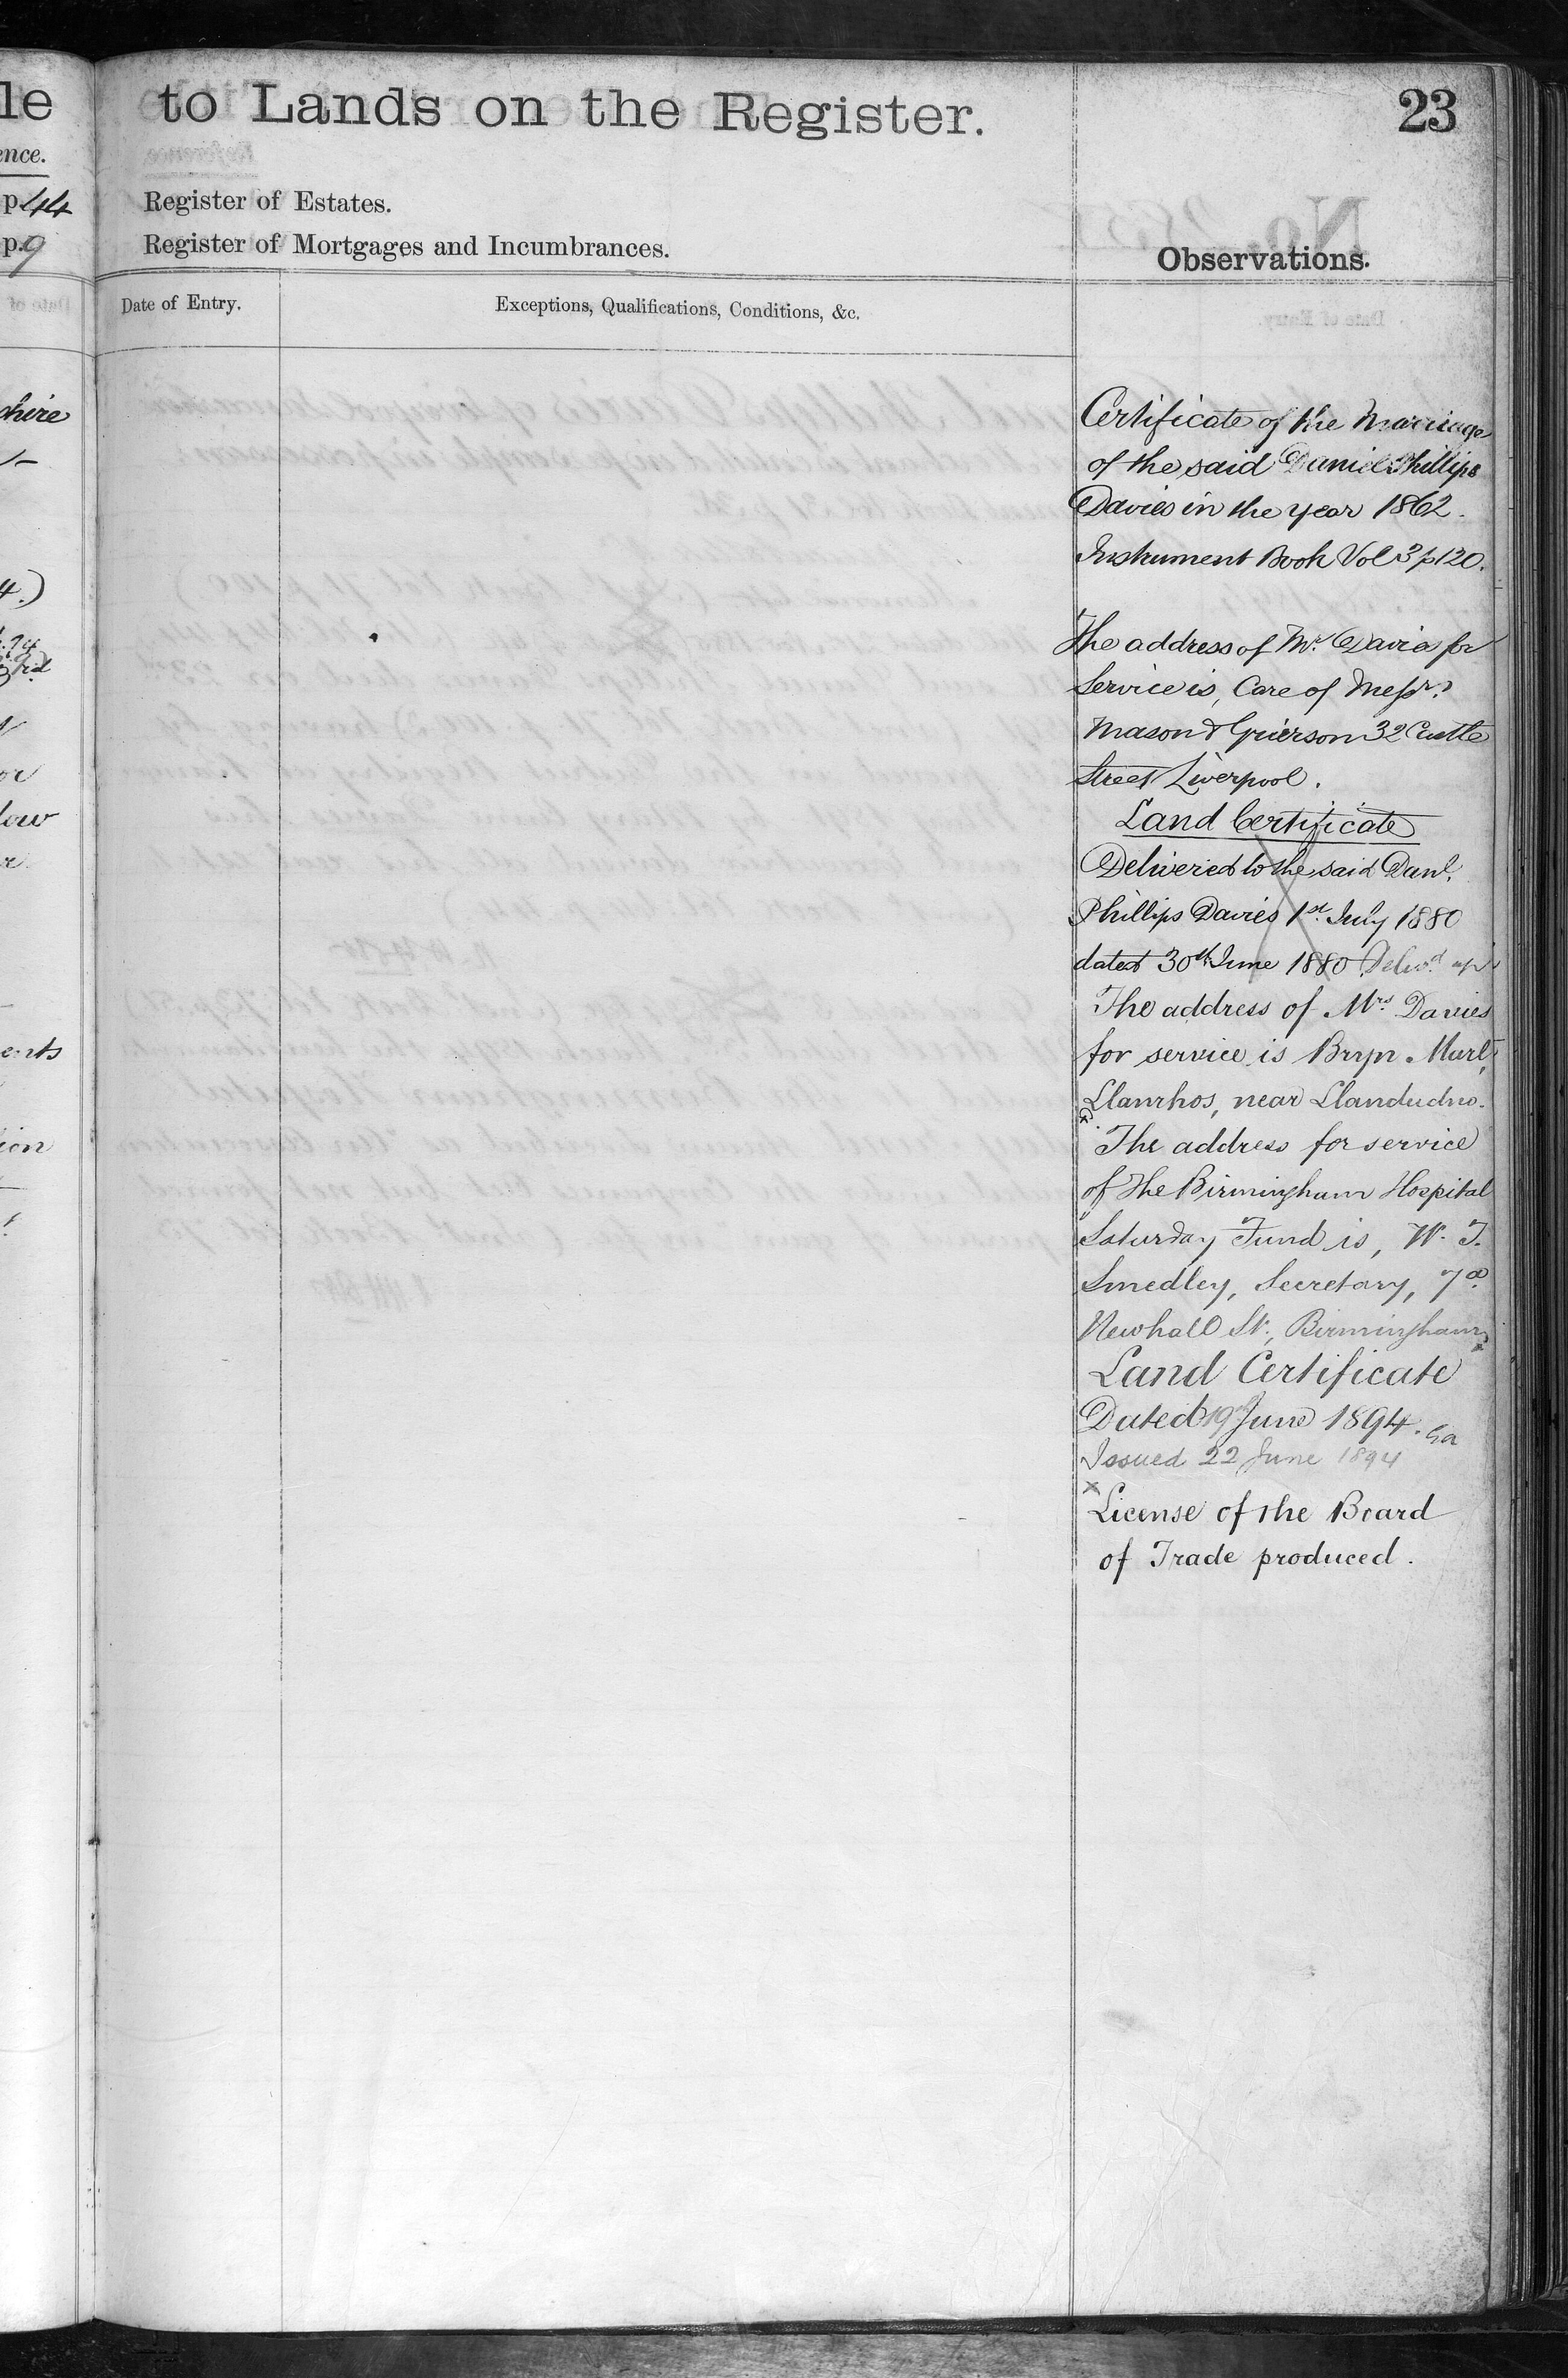 le
ence.
p.44
p.9
shire
4.)
or
low
ents
ion
to Lands on the Register.
23
Register of Estates.
Register of Mortgages and Incumbrances.
Observations.
Date of Entry.
Exceptions, Qualifications, Conditions, &c.
Certificate of the Marriage
of the said Daniel Phillips
Davies in the year 1862.
Instrument Book Vol 3 p 120.
The address of Mr. Davies for
Service is, Care of Messrs.
Mason & Grierson 32 Castle
Street Liverpool.
Land Certificate
Delivered to the said Danl.
Phillips Davies 1st. July 1880
dated 30th June 1880 Delivd. up
The address of Mrs Davies
for service is Bryn Marl,
Llanrhos, near Llandudno.
The address for service
of The Birmingham Hospital
Saturday Fund is, W. T.
Smedley, Secretary, 7a
Newhall St., Birmingham
Land Certificate
Dated 19 June 1894.
Issued 22 June 1894
x
License of the Board
of Trade produced.